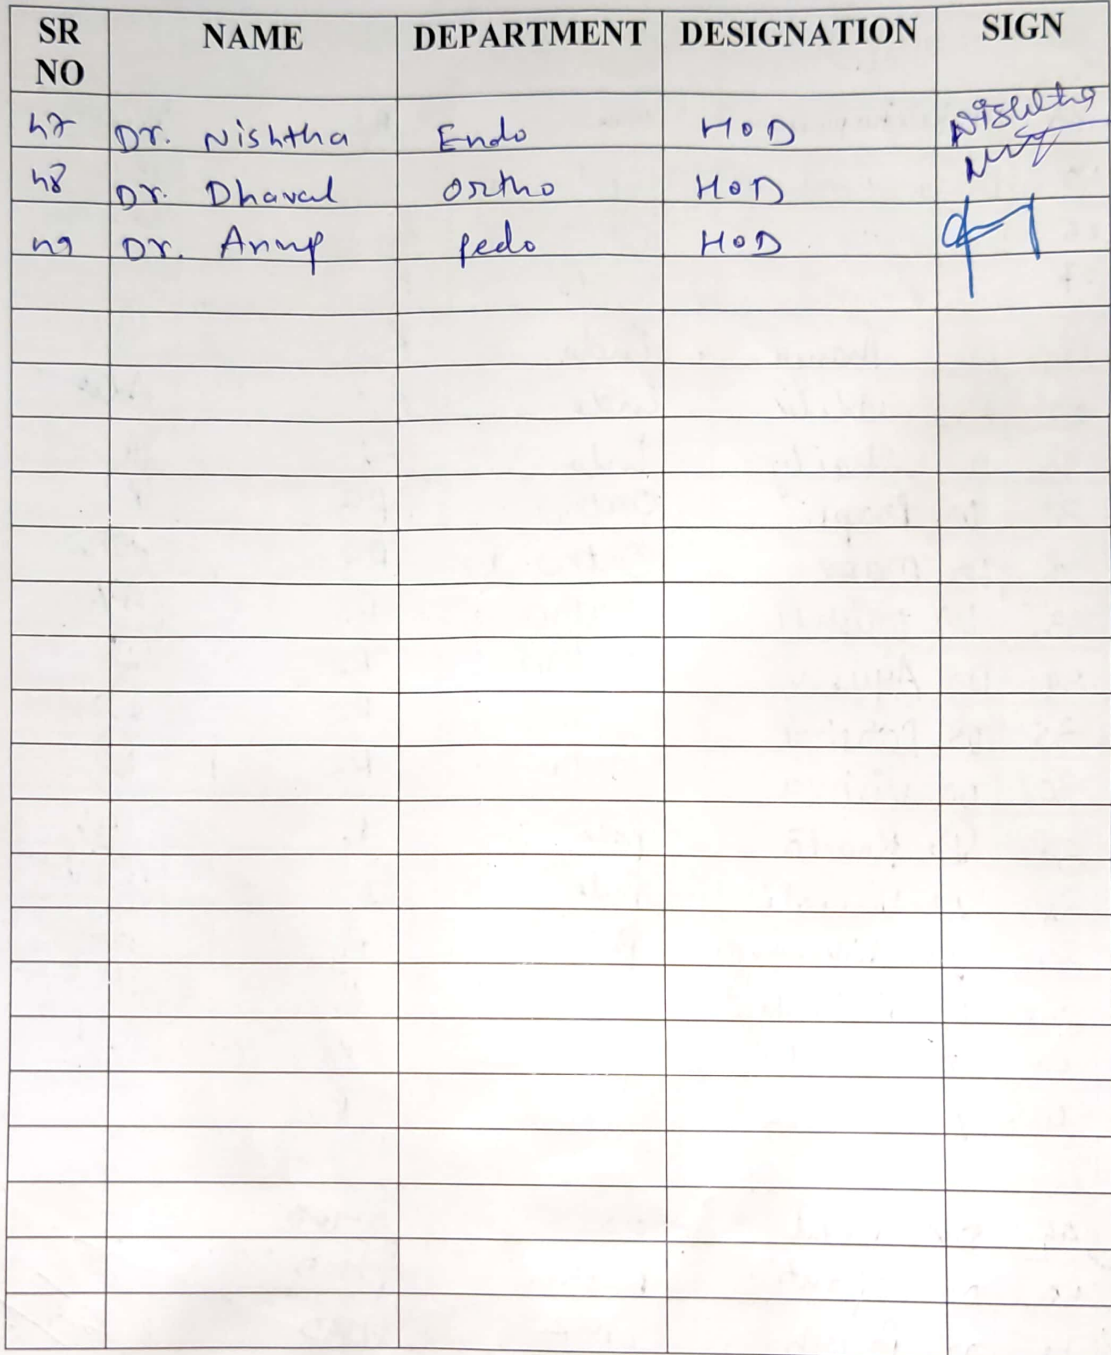 SR NO NAME DEPARTMENT DESIGNATION SIGN
47 Dr. Nishtha Endo HOD Nishtha
48 Dr. Dhaval Ortho HOD
49 Dr. Anup pedo HOD